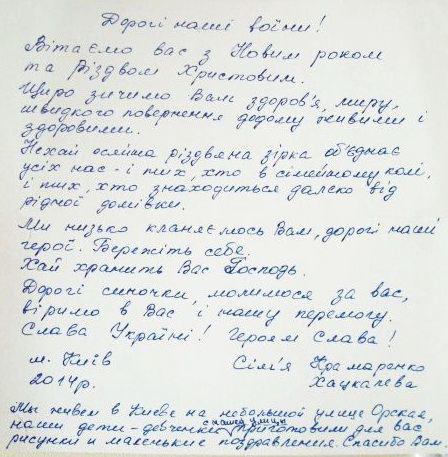 Дорогі наші воїни!
Вітаємо вас з Новим роком
та Різдвом Христовим.
Щиро зичимо Вам здоров'я, миру,
швидкого повернення додому живими і
здоровими.
Нехай осяйна різдвяна зірка об'єднає
усіх нас - і тих, хто в сімейному колі,
і тих, хто знаходиться далеко від
рідної домівки.
Ми низько кланяємось Вам, дорогі наші
герої. Бережіть себе.
Хай хранить Вас Господь.
Дорогі синочки, молимося за вас,
віримо в Вас і нашу перемогу.
Слава Україні! Героям Слава!
м. Київ Сім'я Крамаренко
2014р. Хацкалева
Мы живем в Киеве на небольшой улице Орская,
наши дети - девченки с нашей улицы приготовили для вас
рисунки и маленькие поздравления. Спасибо Вам.